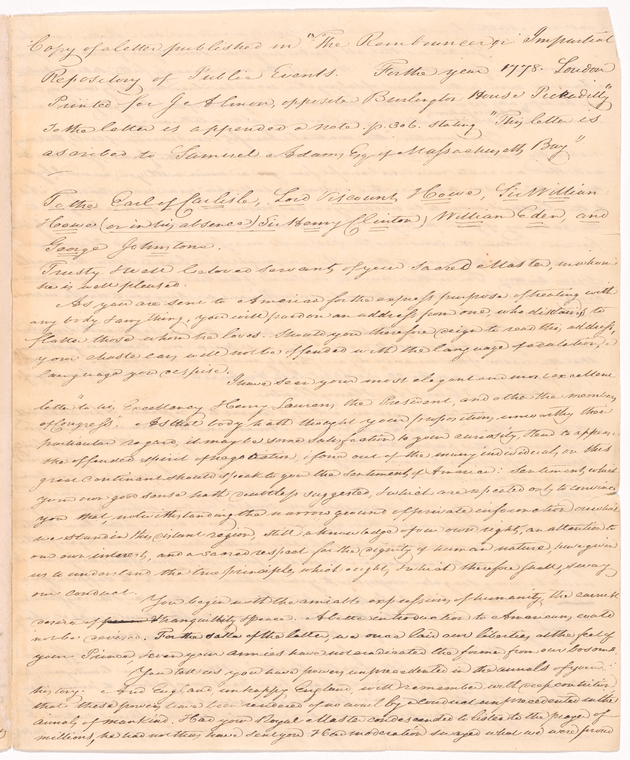 Copy of a letter published in "The Remembrancer or Impartial
Repository of Public Events. For the year 1778. London
Printed for J. Almon, opposite Burlington House Pickadilly"
To the letter is appended a note p. 306. stating "This letter is
ascribed to Samuel Adams Esq of Massachusetts Bay"
To the Earl of Carlisle, Lord Viscount Howe, Sir William
Howe (or in his absence) Sir Henry Clinton, William Eden, and
George Johnstone.
Trusty & well beloved servants of your sacred Master, in whom
he is well pleased.
As you are sent to America for the express purpose of treating with
any body & anything, you will pardon an address from one who disdains to
flatter those whom he loves. Should you therefore deign to read this address,
your chaste ears will not be offended with the language of adulation, a
language you despise.
I have seen your most elegant and most excellent
letter "to his Excellency Henry Laurens the President, and other the members
of Congress." As that body hath thought your propositions unworthy their
particular regard, it may be some satisfaction to your curiosity, & tend to appease
the offended spirit of negotiation, if one out of the many individuals on this
great continent should speak to you the sentiments of America: Sentiments which
your own good sense hath doubtless suggested, & which are repeated only to convince
you that, notwithstanding the narrow ground of private information on which
we stand in this distant region, still a knowledge of our own rights, an attention to
our own interests, and a sacred respect for the dignity of human nature, have given
us to understand the true principles which ought, & which therefore shall, sway
our conduct.
You begin with the amiable expressions of humanity, the earnest
desire of tranquillity & peace. A better introduction to Americans could
not be devised. For the sake of the latter, we once laid our liberties at the feet of
your Prince, & even your armies have not eradicated the former from our bosoms.
You tell us you have powers unprecedented in the annals of your
history: And England, unhappy England, will remember with deep contrition
that these powers have been rendered of no avail by a conduct unprecedented in the
annals of mankind. Had your Royal Master condescended to listen to the prayer of
millions, he had not thus have sent you. Had moderation swayed what we were proud